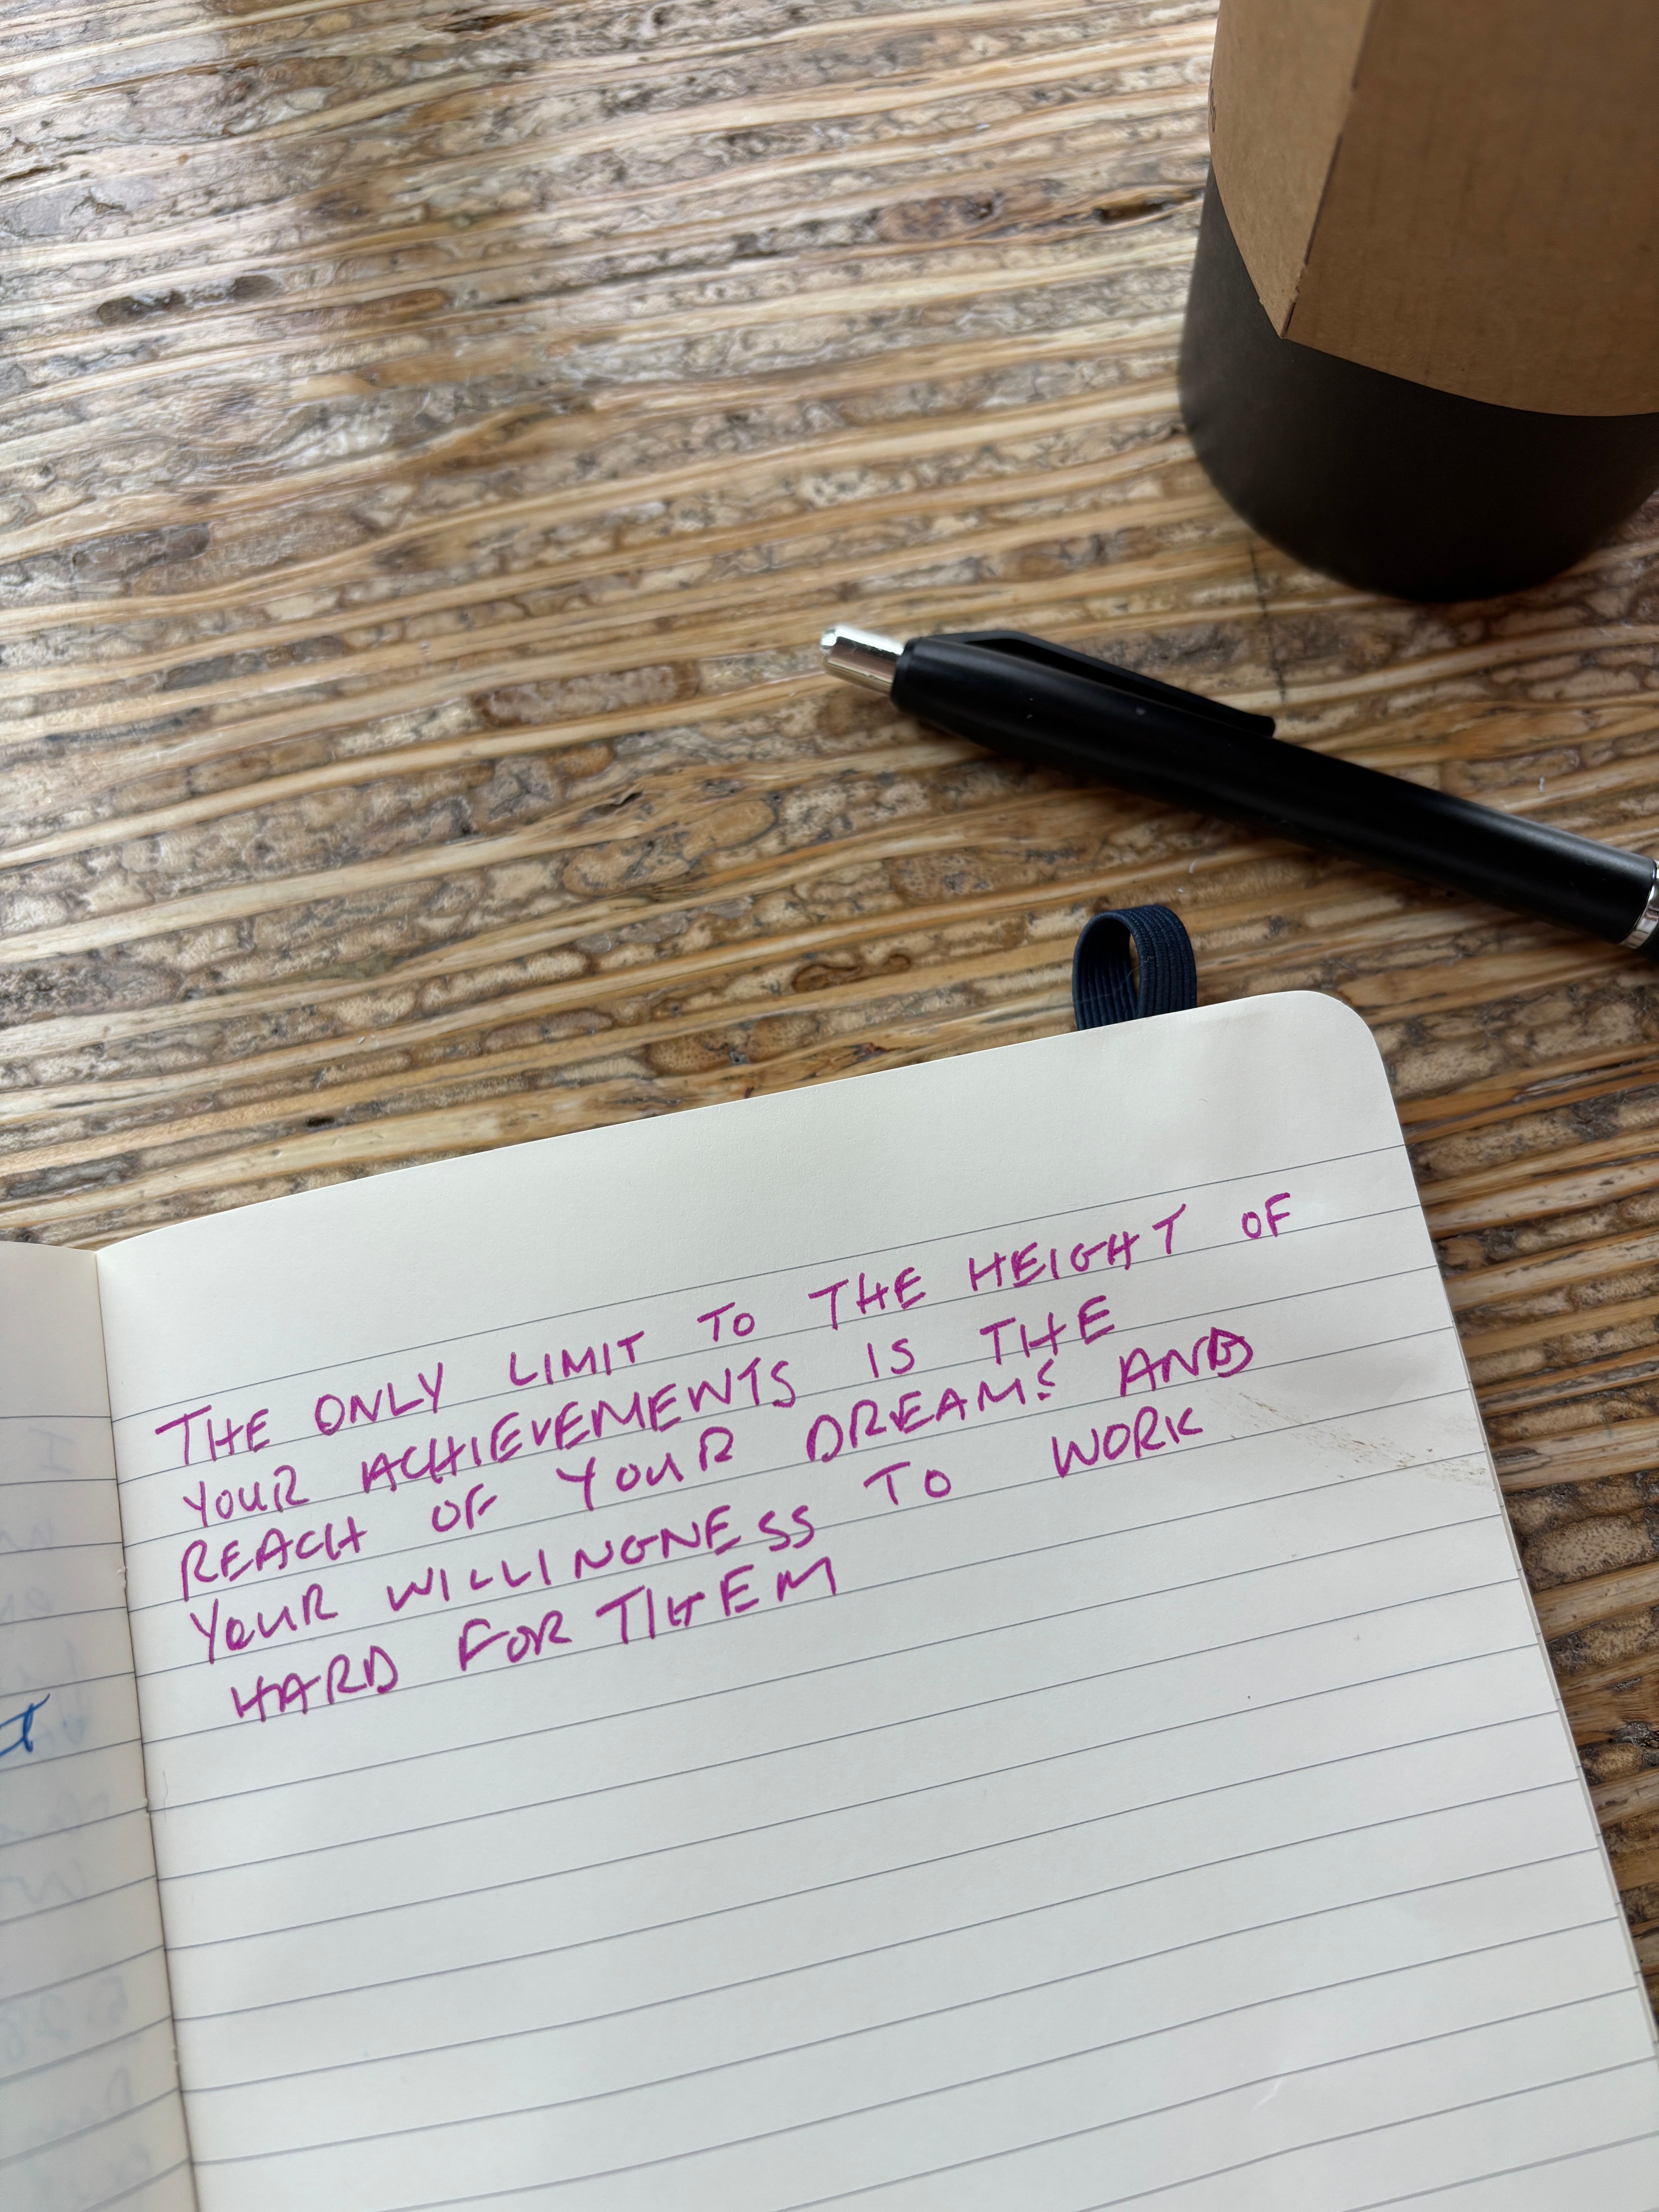 THE ONLY LIMIT TO THE HEIGHT OF
YOUR ACHIEVEMENTS IS THE
REACH OF YOUR DREAMS AND
YOUR WILLINGNESS TO WORK
HARD FOR THEM